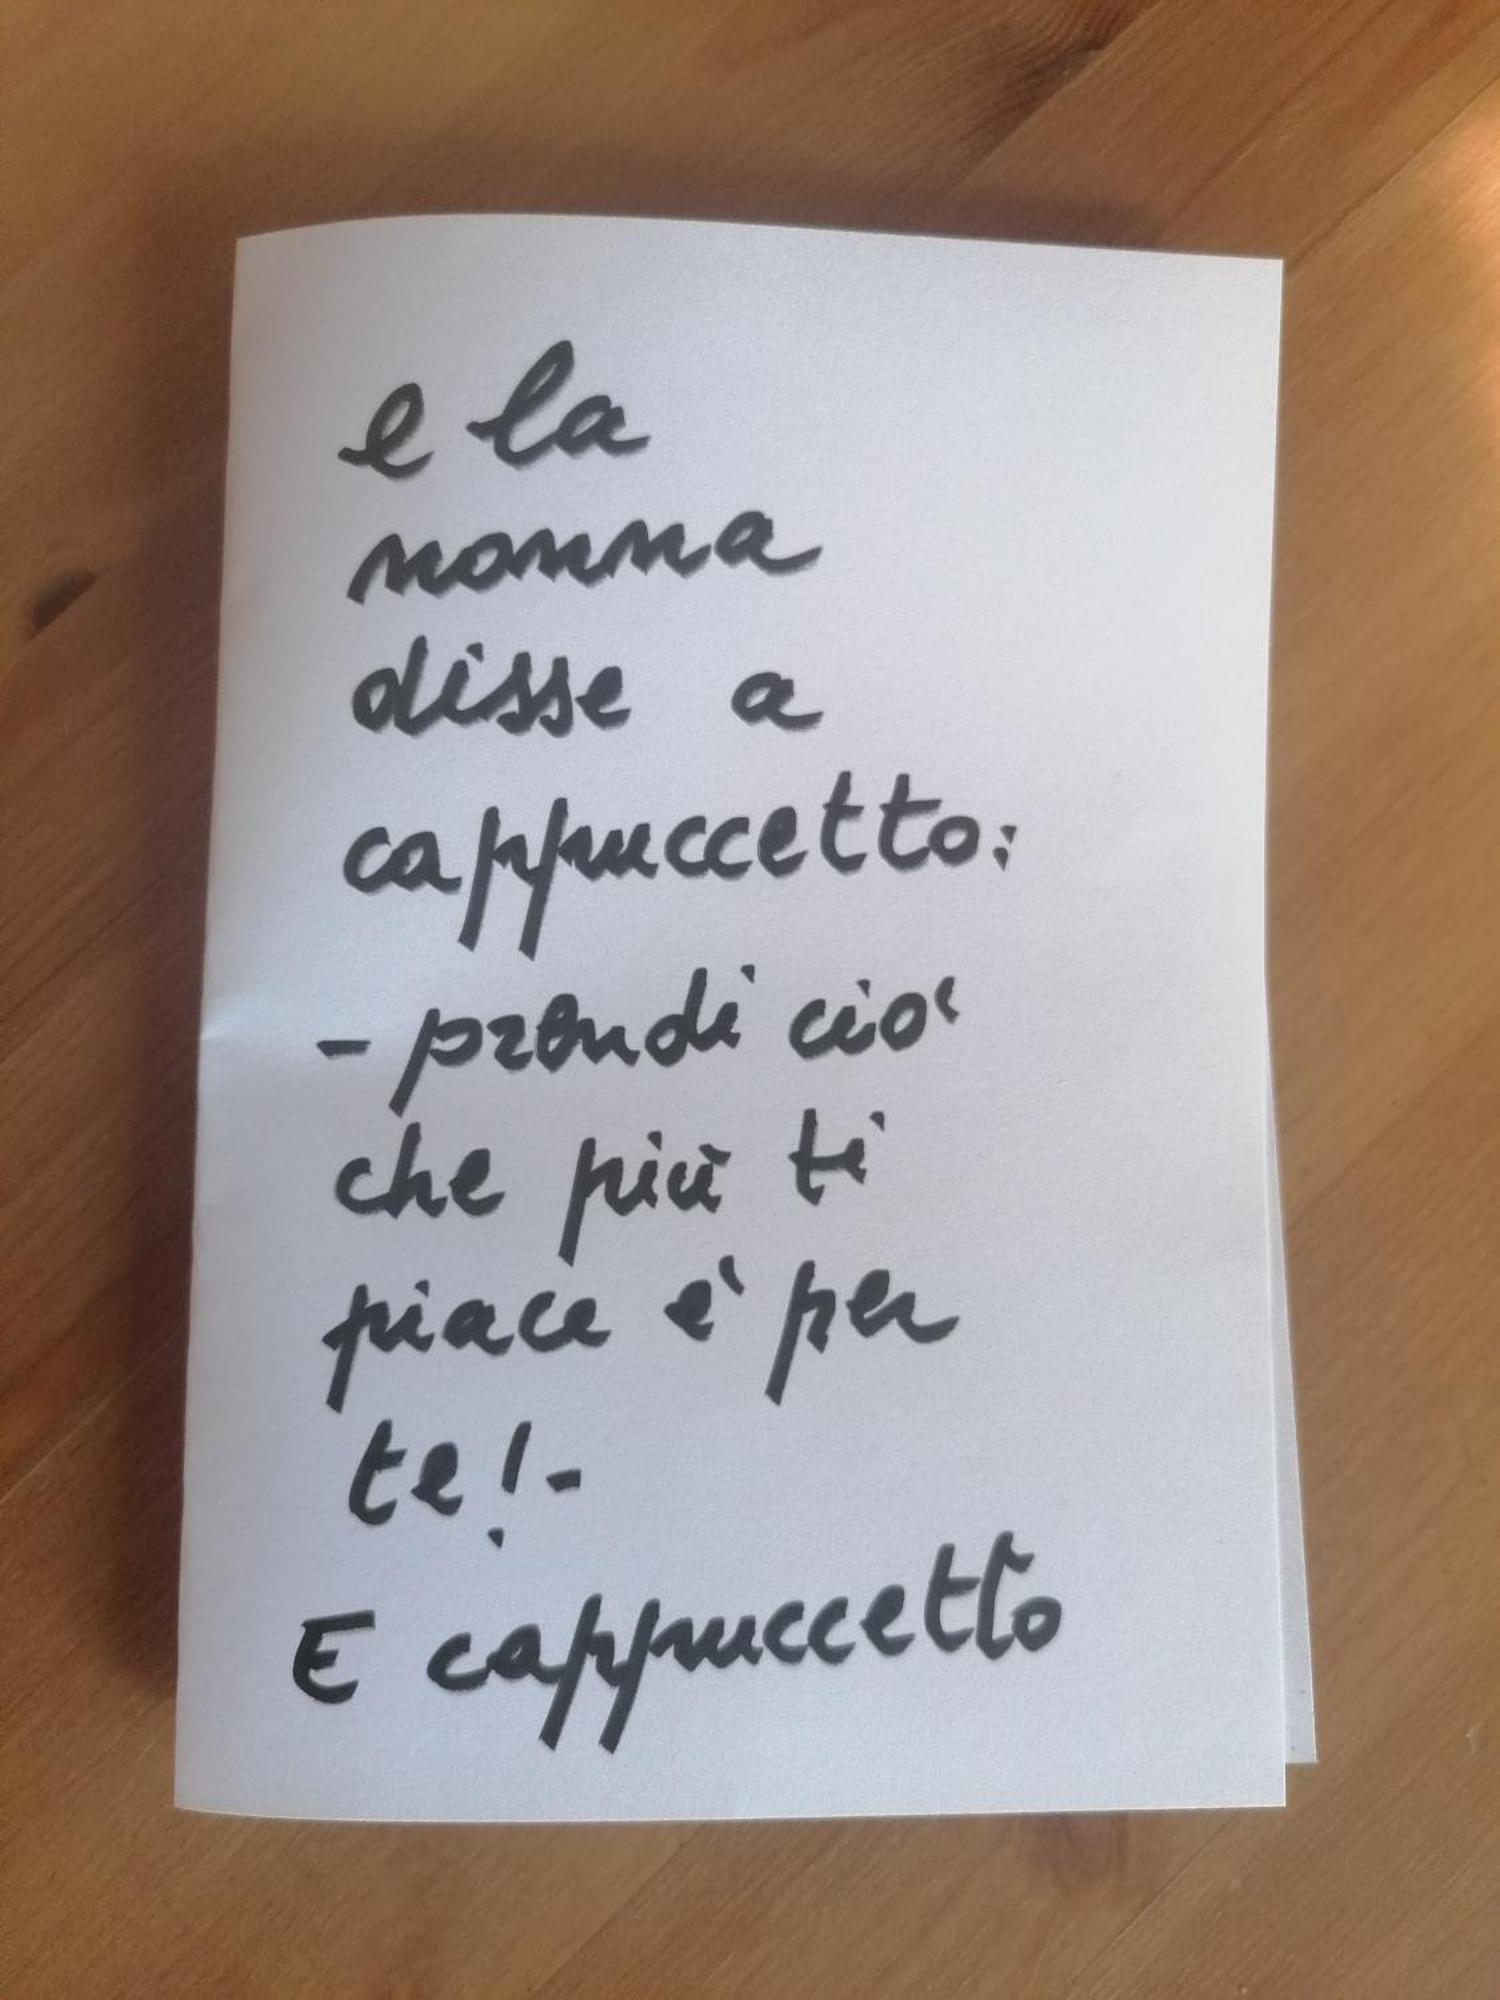 e la
nonna
disse a
cappuccetto:
- prendi ciò
che più ti
piace è per
te!-
E cappuccetto